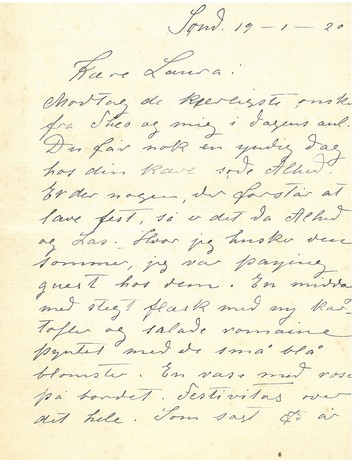 Sønd. 19-1-20
Kære Laura!
Modtag de kjærligste ønsker
fra Theo og mig i dagens anl.
Du får nok en yndig dag
hos din kære søde Alhed.
Er der nogen, der forstår at
lave fest, så er det da Alhed
og Las. Hvor jeg husker den
sommer, jeg var paying
guest hos dem. En midda
med stegt flæsk med ny kar-
tofler og salade romaine
pyntet med de små blå
blomster. En vase med rose
på bordet. Festivitas over
det hele. Som sagt år